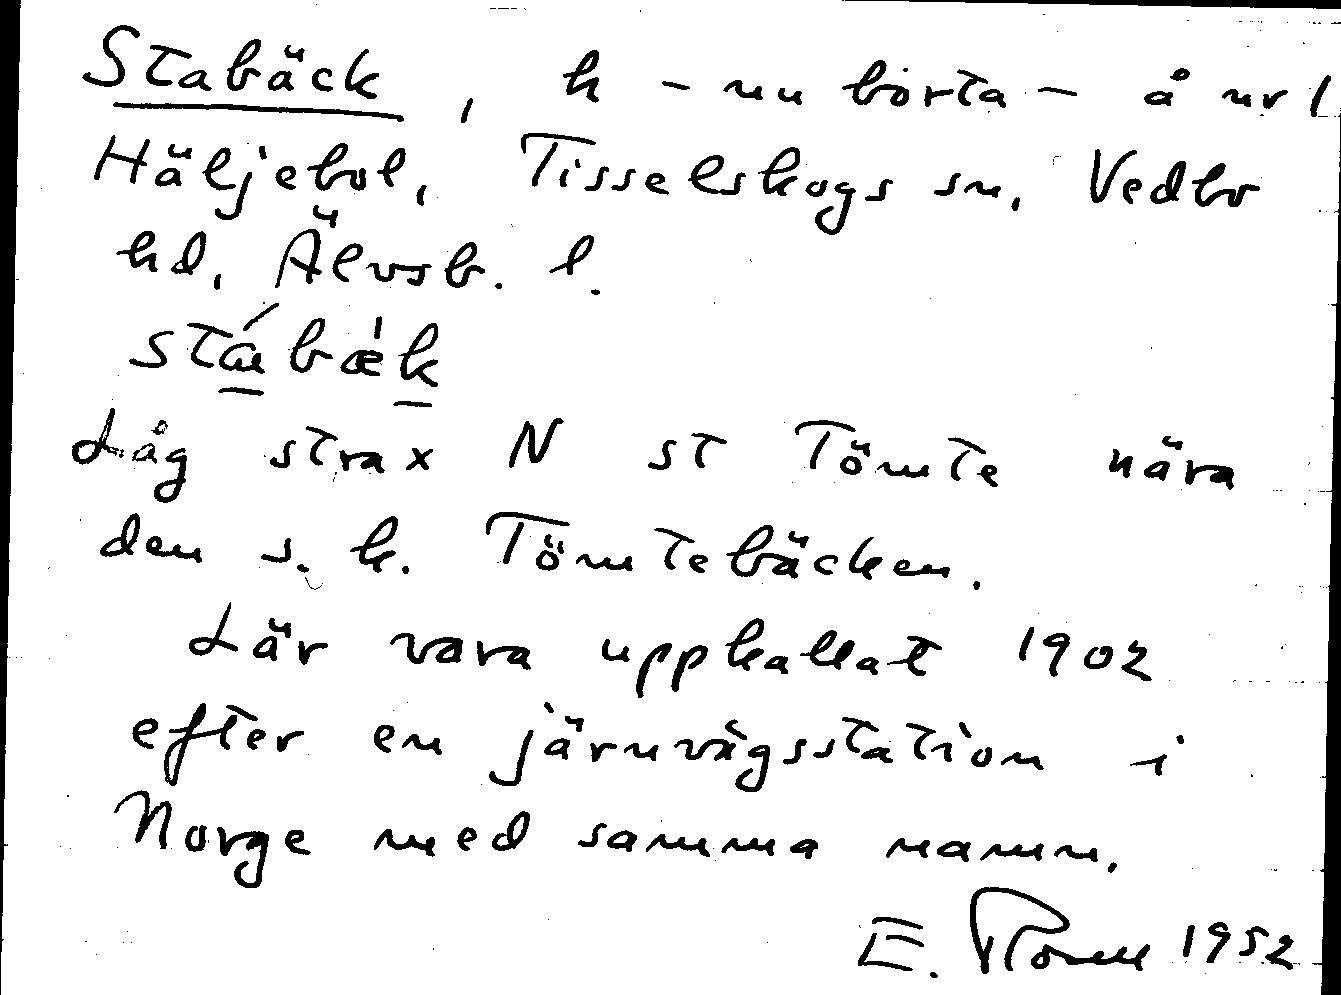 Stabäck, h – nu borta – å nr 1
Häljebol, Tisselskogs sn, Vedbo
hd, Älvsb. l.
stábæ̀k
Låg strax N st Tömte nära
den s.k. Tömtebäcken.
Lär vara uppkallat 1902
efter en järnvägsstation i
Norge med samma namn.
E. 1952